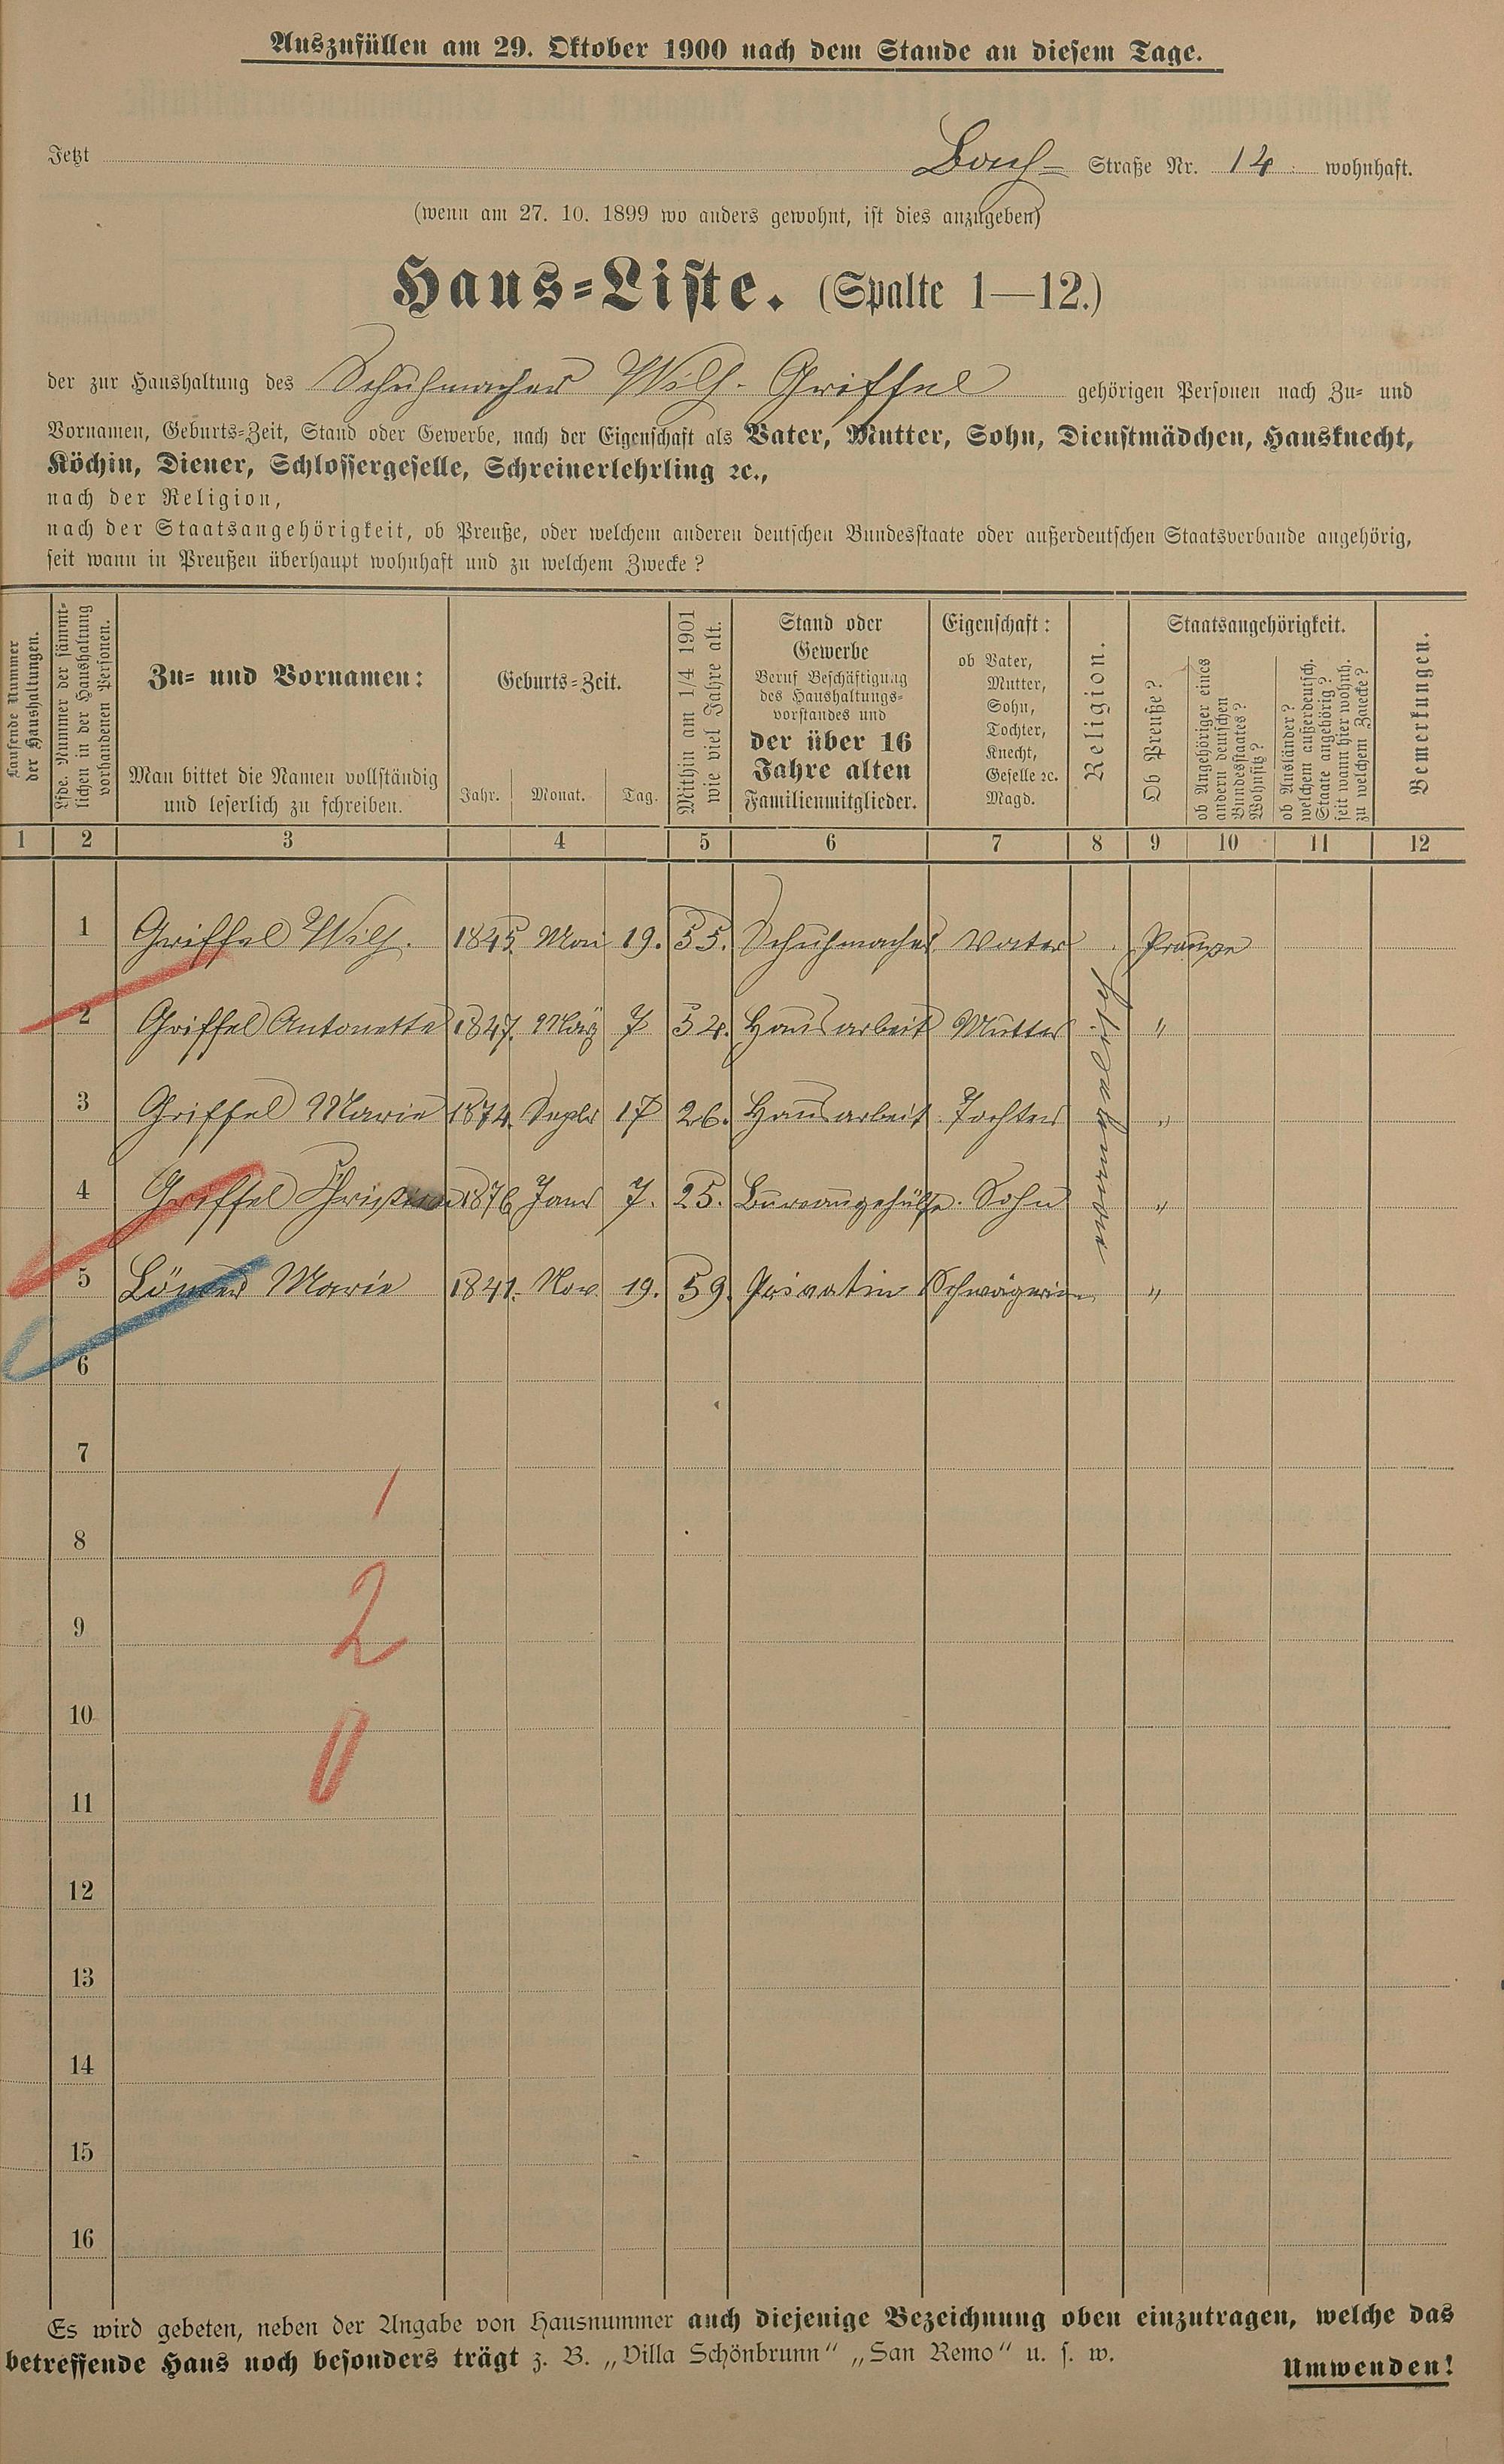 Auszufüllen am 29. Oktober 1900 nach dem Stande an diesem Tage.
Jetzt Straße Nr. 14 wohnhaft.
(wenn am 27. 10. 1899 wo anders gewohnt, ist dies anzugeben)
Haus-Liste. (Spalte 1—12.)
der zur Haushaltung des Schuhmacher Wilh. Griffel gehörigen Personen nach Zu- und
Vornamen, Geburts-Zeit, Stand oder Gewerbe, nach der Eigenschaft als Vater, Mutter, Sohn, Dienstmädchen, Hausknecht,
Köchin, Diener, Schlossergeselle, Schreinerlehrling ꝛc.,
nach der Religion,
nach der Staatsangehörigkeit, ob Preuße, oder welchem anderen deutschen Bundesstaate oder außerdeutschen Staatsverbande angehörig,
seit wann in Preußen überhaupt wohnhaft und zu welchem Zwecke?
Laufende Nummer
der Haushaltungen.
Lfde. Nummer der sämmt-
lichen in der Haushaltung
vorhandenen Personen.
Zu- und Vornamen:
Man bittet die Namen vollständig
und leserlich zu schreiben.
Geburts-Zeit.
Jahr. Monat. Tag.
Mithin am 1/4 1901
wie viel Jahre alt.
Stand oder
Gewerbe
Beruf Beschäftigung
des Haushaltungs-
vorstandes und
der über 16
Jahre alten
Familienmitglieder.
Eigenschaft:
ob Vater,
Mutter,
Sohn,
Tochter,
Knecht,
Geselle ꝛc.
Magd.
Religion.
Staatsangehörigkeit.
Ob Preuße?
ob Angehöriger eines
andern deutschen
Bundesstaates?
Wohnsitz?
ob Ausländer?
welchem außerdeutsch.
Staate angehörig?
seit wann hier wohnh.
zu welchem Zwecke?
Bemerkungen.
1 2 3 4 5 6 7 8 9 10 11 12
1 Griffel Wilh. 1845. Mai 19. 55. Schuhmacher Vater Preuße
2 Griffel Antonette 1847. März 7 54. Hausarbeit Mutter "
3 Griffel Marie 1874. Septr 17 26. Hausarbeit. Tochter "
4 Griffel 1876 Janr 7. 25. Bureaugehülfe. Sohn "
5 Marie 1841. Nov. 19. 59. Privatin Schwägerin "
6
7
1
8
2
9
10
0
11
12
13
14
15
16
Es wird gebeten, neben der Angabe von Hausnummer auch diejenige Bezeichnung oben einzutragen, welche das
betreffende Haus noch besonders trägt z. B. „Villa Schönbrunn“ „San Remo“ u. s. w.
Umwenden!